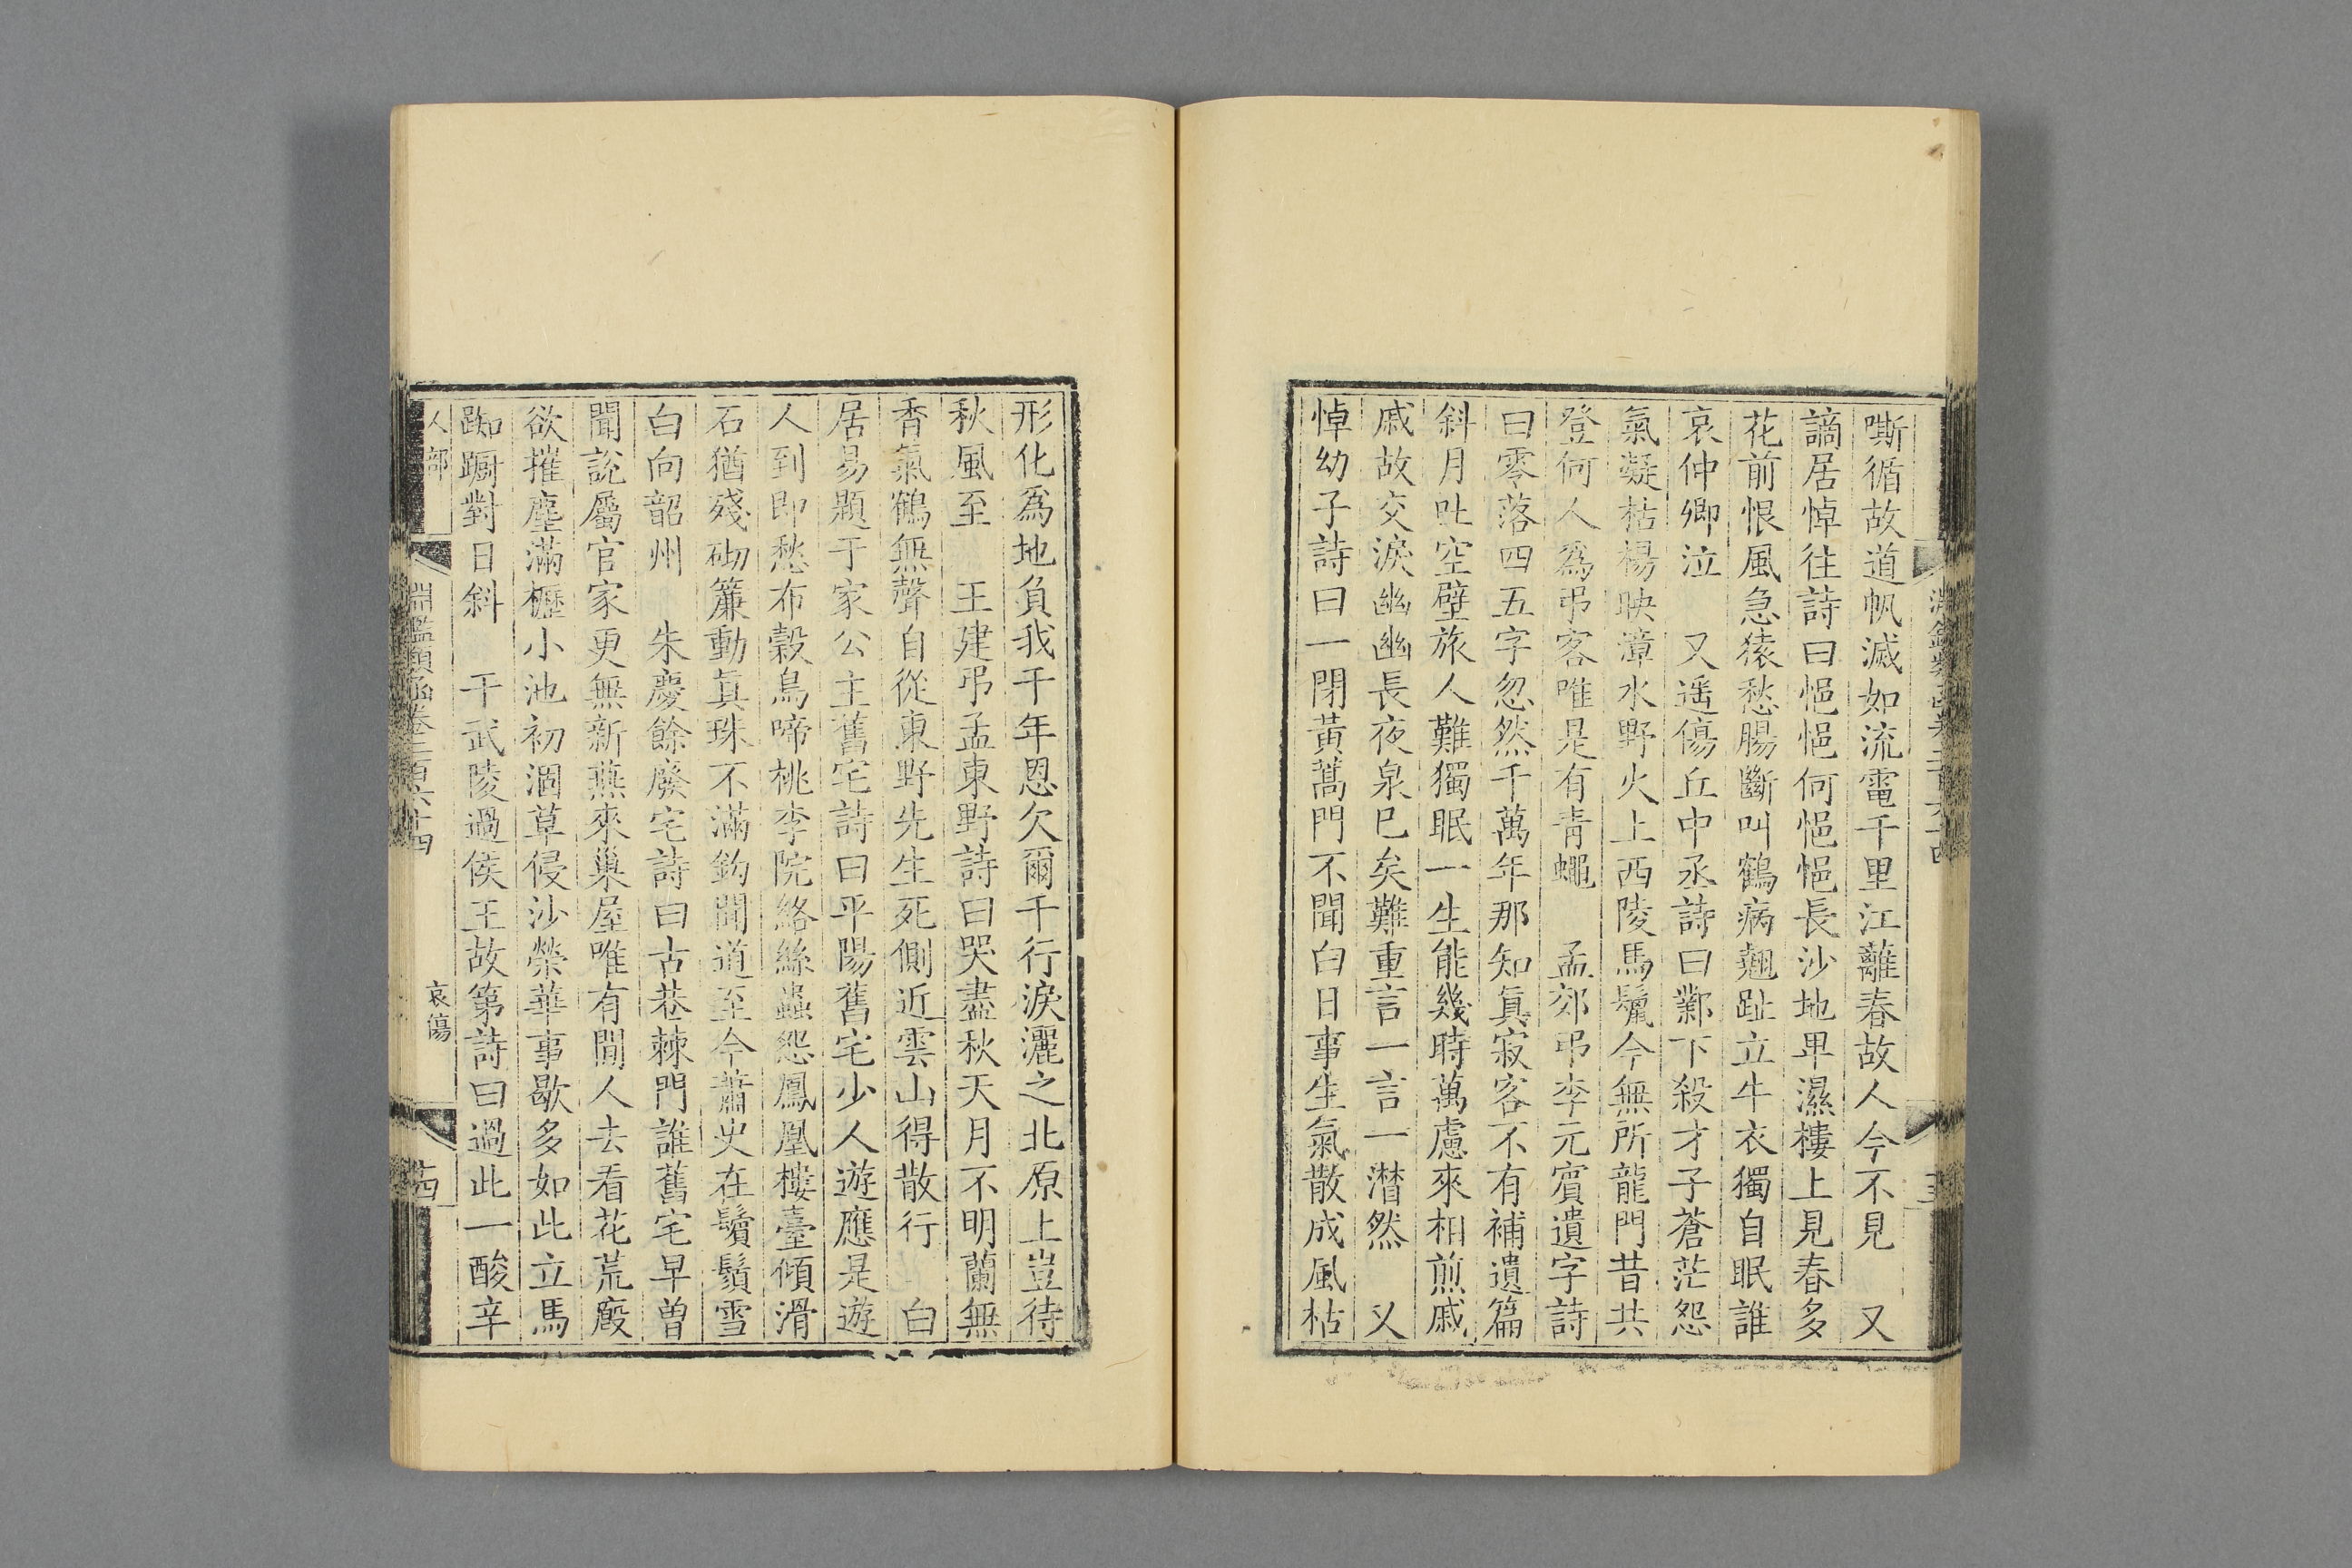 嘶循故道帆滅如流電千里江蘺春故人今不見　又
謫居悼往詩曰悒悒何悒悒長沙地卑濕樓上見春多
花前恨風急猿愁腸斷叫鶴病翹趾立牛衣獨自眠誰
哀仲卿泣　又遥傷丘中丞詩曰鄴下殺才子蒼茫怨
氣凝枯楊映漳水野火上西陵馬鬣今無所龍門昔共
登何人爲弔客唯是有青蠅　孟郊弔李元賓遺字詩
曰零落四五字忽然千萬年那知眞寂客不有補遺篇
斜月吐空壁旅人難獨眠一生能幾時萬慮來相煎戚
戚故交淚幽幽長夜泉巳矣難重言一言一潸然　又
悼幼子詩曰一閉黃蒿門不聞白日事生氣散成風枯
形化爲地負我千年恩欠爾千行淚灑之北原上豈待
秋風至　王建弔孟東野詩曰哭盡秋天月不明蘭無
香氣鶴無聲自從東野先生死側近雲山得散行　白
居易題于家公主舊宅詩曰平陽舊宅少人遊應是遊
人到即愁布穀鳥啼桃李院絡絲蟲怨鳳凰樓臺傾滑
石猶殘砌簾動眞珠不滿鈎聞道至今蕭史在鬢鬚雪
白向韶州　朱慶餘廢宅詩曰古巷棘門誰舊宅早曽
聞說屬官家更無新燕來巢屋唯有閒人去看花荒廢
欲摧塵滿櫪小池初涸草侵沙榮華事歇多如此立馬
踟躕對日斜　于武陵過侯王故第詩曰過此一酸辛
人部
淵鑑類函卷二百六十四
哀傷